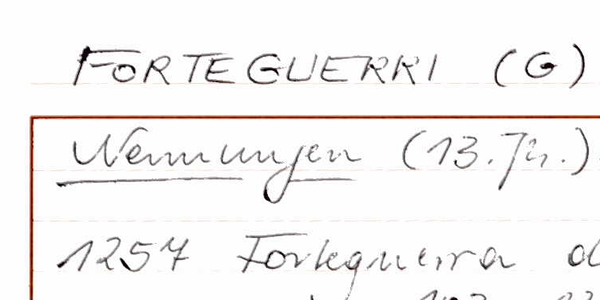 FORTEGUERRI (G)
Nennungen (13. Jh.)
1257 Forteguerra